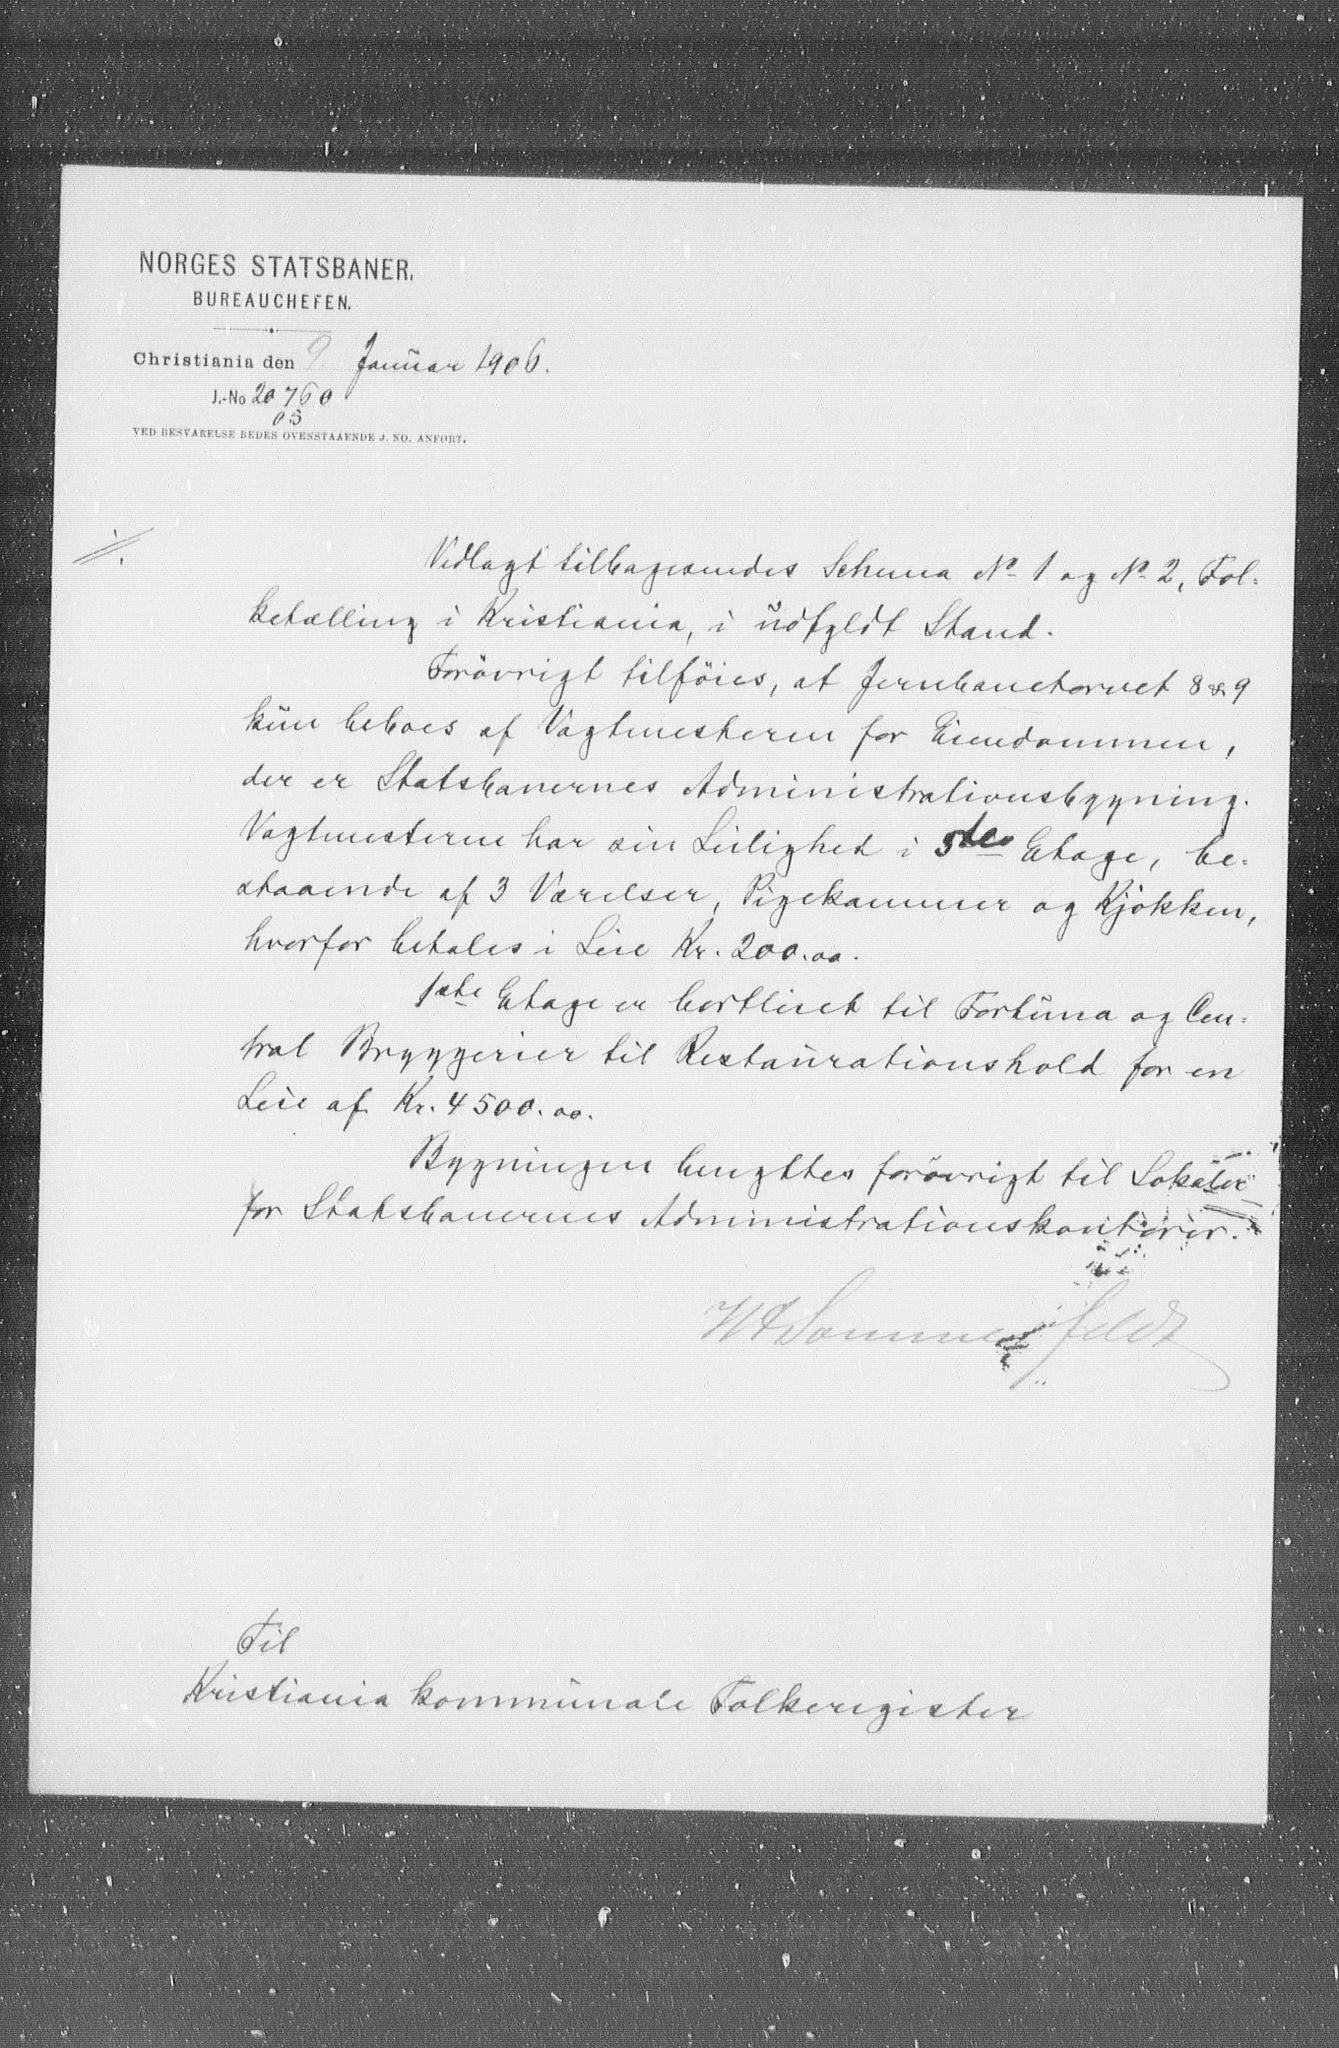 NORGES STATSBANER.
BUREAUCHEFEN.
Christiania den 9. Januar 1906.
J.-No 20760
05
VED BESVARELSE BEDES OVENSTAAENDE J. NO. ANFØRT.
Vedlagt tilbagesendes Schema No 1 og No 2, Fol-
ketælling i Kristiania, i udfyldt Stand.
Forøvrigt tilføies, at Jernbanetorvet 8 & 9
kun beboes af Vagtmesteren for Eiendommen,
der er Statsbanernes Administrationsbygning.
Vagtmesteren har sin Leilighed i 5de Etage, be-
staaende af 3 Værelser, Pigekammer og Kjøkken,
hvorfor betales i Leie Kr. 200.00.
1ste Etage er bortleiet til Fortuna og Cen-
tral Bryggerier til Restaurationshold for en
Leie af Kr. 4500.00.
Bygningen benyttes forøvrigt til Lokaler
for Statsbanernes Administrationskontorer.
Sommerfeldt
Til
Kristiania kommunale Folkeregister